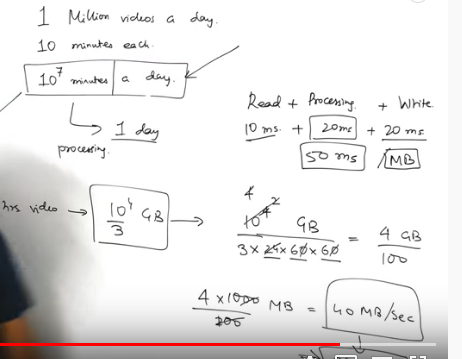 1 Million videos a day.
10 minutes each.
10^7 minutes | a day.
1 day
processing.
Read + Processing + Write
10 ms. + 20ms + 20 ms
50 ms /MB
hrs video → 10^4/3 GB →
4 2
10^4 GB / 3 x 24 x 60 x 60 = 4 GB / 100
4 x 1000 MB / 100 = 40 MB/sec